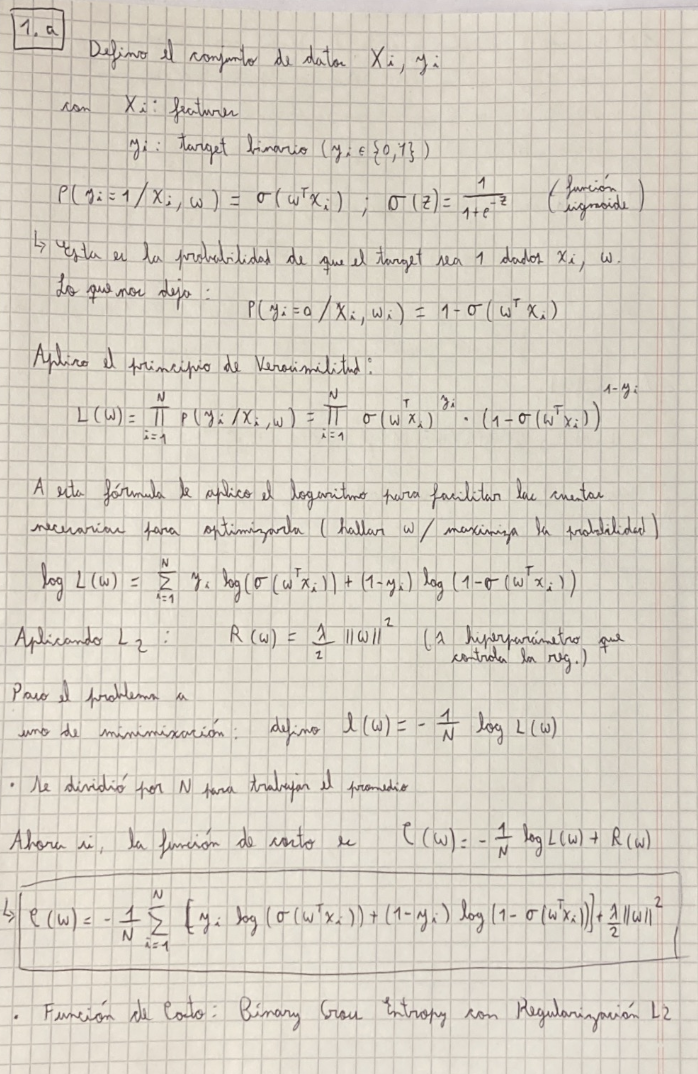 1.a
Defino el conjunto de datos Xi, yi
con Xi: features
yi: target binario (yi ∈ {0,1})
P(yi=1/xi, w) = σ(wᵀxi) ; σ(z) = 1/(1+e^-z) (función sigmoide)
↳ Esta es la probabilidad de que el target sea 1 dados xi, w.
Lo que nos deja:
P(yi=0/xi, wi) = 1-σ(wᵀxi)
Aplico el principio de Verosimilitud:
L(w) = ∏_{i=1}^{N} P(yi/xi, w) = ∏_{i=1}^{N} σ(wᵀxi)^{yi} · (1-σ(wᵀxi))^{1-yi}
A esta fórmula le aplico el logaritmo para facilitar las cuentas
necesarias para optimizarla (hallar w / maximiza la probabilidad)
log L(w) = ∑_{i=1}^{N} yi log(σ(wᵀxi)) + (1-yi) log(1-σ(wᵀxi))
Aplicando L2: R(w) = λ/2 ||w||² (λ hiperparámetro que
controla la reg.)
Paso el problema a
uno de minimixación: defino l(w) = - 1/N log L(w)
· Se dividió por N para trabajar el promedio
Ahora si, la función de costo es C(w) = - 1/N log L(w) + R(w)
↳ C(w) = - 1/N ∑_{i=1}^{N} [yi log(σ(wᵀxi)) + (1-yi) log(1-σ(wᵀxi))] + λ/2 ||w||²
· Función de Costo: Binary Cross Entropy con Regularización L2